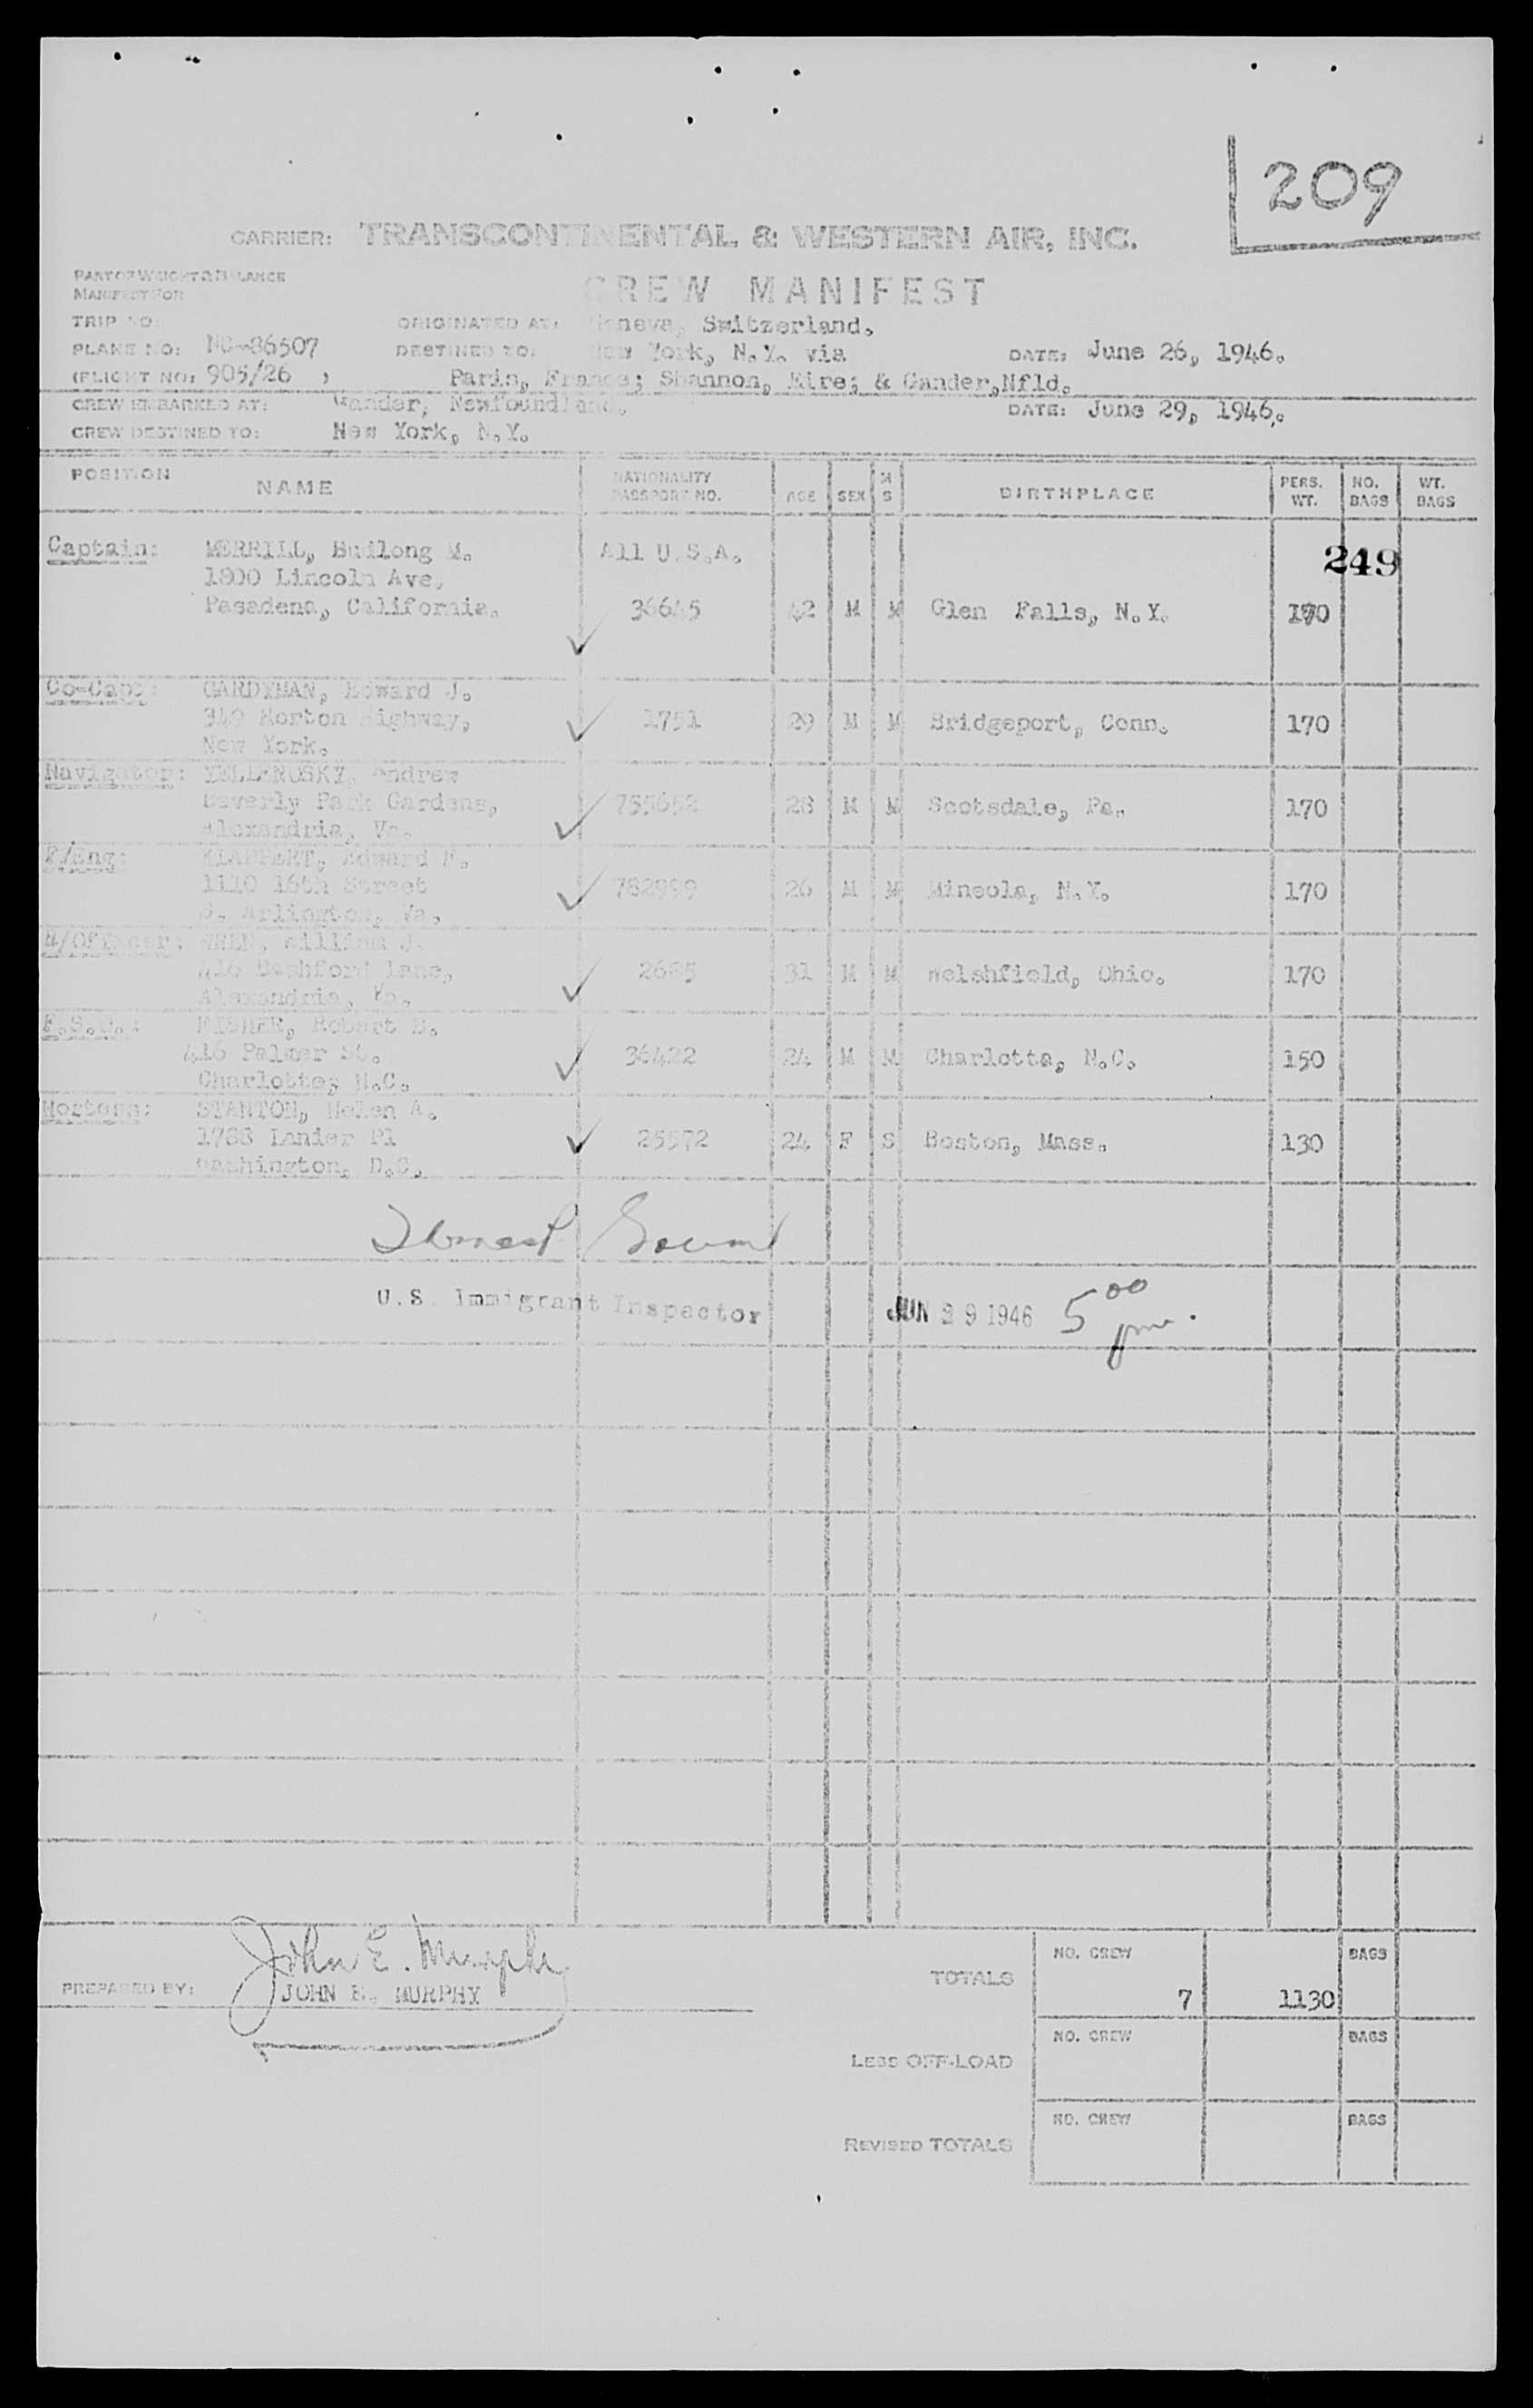 209
CARRIER: TRANSCONTINENTAL & WESTERN AIR, INC.
PART OF WEIGHT & BALANCE
MANIFEST FOR
CREW MANIFEST
TRIP NO: ORIGINATED AT: Geneva, Switzerland.
PLANE NO: NC-86507 DESTINED TO: New York, N.Y. via DATE: June 26, 1946.
(FLIGHT NO: 905/26 ) Paris, France; Shannon, Eire; & Gander,Nfld.
CREW EMBARKED AT: Gander, Newfoundland. DATE: June 29, 1946.
CREW DESTINED TO: New York, N.Y.
POSITION NAME NATIONALITY PASSPORT NO. AGE SEX M S BIRTHPLACE PERS. WT. NO. BAGS WT. BAGS
249
Captain: MERRILL, Budlong M. All U.S.A.
1800 Lincoln Ave.
Pasadena, California. 36645 42 M M Glen Falls, N.Y. 170
Co-Capt: Edward J.
349 Morton Highway, 1751 29 M M Bridgeport, Conn. 170
New York.
Navigator: YELLENOSKY, Andrew
Beverly Park Gardens, 755652 28 M M Scotsdale, Pa. 170
Alexandria, Va.
F/Eng: KLAPPERT, Edward F.
1110 16th Street 782999 26 M M Mineola, N.Y. 170
S. Arlington, Va.
R/Officer: William J.
416 Bashford Lane, 2685 31 M M Welshfield, Ohio. 170
Alexandria, Va.
F.S.O.: FISHER, Robert
416 Palmer St. 36422 24 M M Charlotte, N.C. 150
Charlotte, N.C.
Hostess: STANTON, Helen A.
1788 Lanier Pl 25572 24 F S Boston, Mass. 130
Washington, D.C.
U.S. Immigrant Inspector JUN 29 1946 5 00 pm.
John E. Murphy
PREPARED BY: JOHN E. MURPHY
TOTALS NO. CREW 7 1130 BAGS
LESS OFF-LOAD NO. CREW BAGS
REVISED TOTALS NO. CREW BAGS